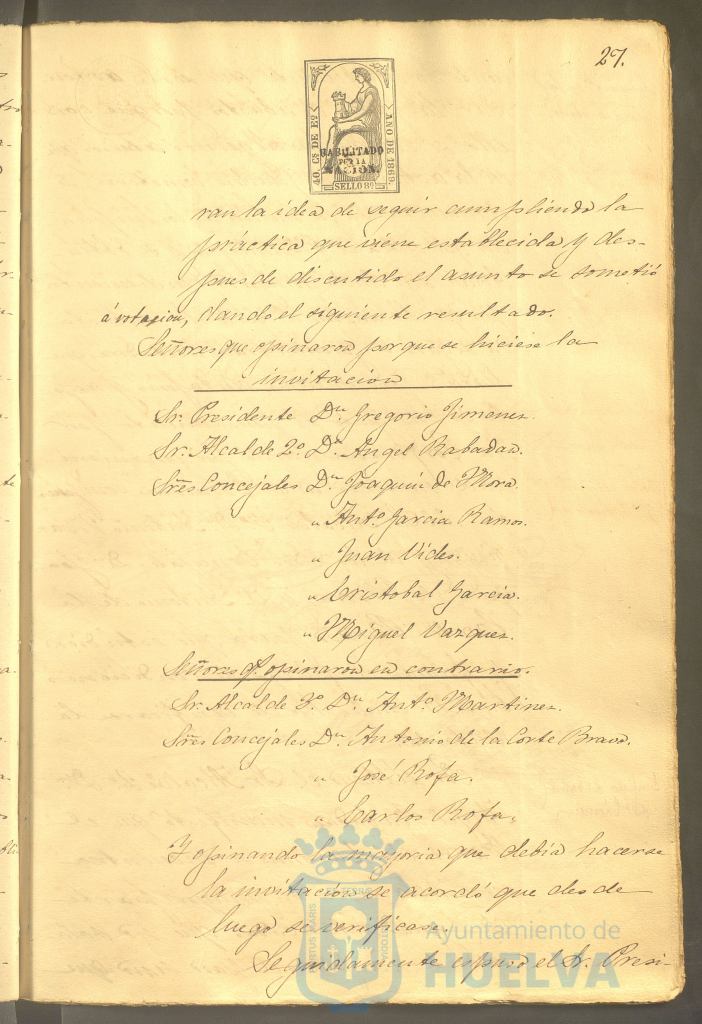 27.
40. Cs DE Eo
AÑO DE 1869.
HABILITADO
POR LA
NACION.
SELLO 8º
ran la idea de seguir cumpliendo la
práctica que viene establecida y des-
pues de discutido el asunto se sometió
á votacion, dando el siguiente resultado.
Señores que opinaron porque se hiciese la
invitacion
Sr. Presidente Dn. Gregorio Jimenez.
Sr. Alcalde 2º. Dn. Angel Rabadan.
Sres Concejales Dn. Joaquin de Mora
" Anto. Garcia Ramos.
" Juan Vides.
" Cristobal Garcia.
" Miguel Vazquez.
Señores q. opinaron en contrario.
Sr. Alcalde 3º. Dn. Anto. Martinez.
Sres Concejales Dn. Antonio de la Corte Bravo.
" José Rofa.
" Carlos Rofa.
Y opinando la mayoria que debia hacerse
la invitacion se acordó que desde
luego se verificase.
Seguidamente espuso el Sr. Presi-
Ayuntamiento de
HUELVA